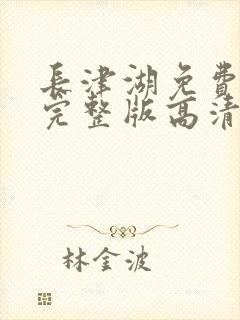 長津湖免費
完整版高清
林金波